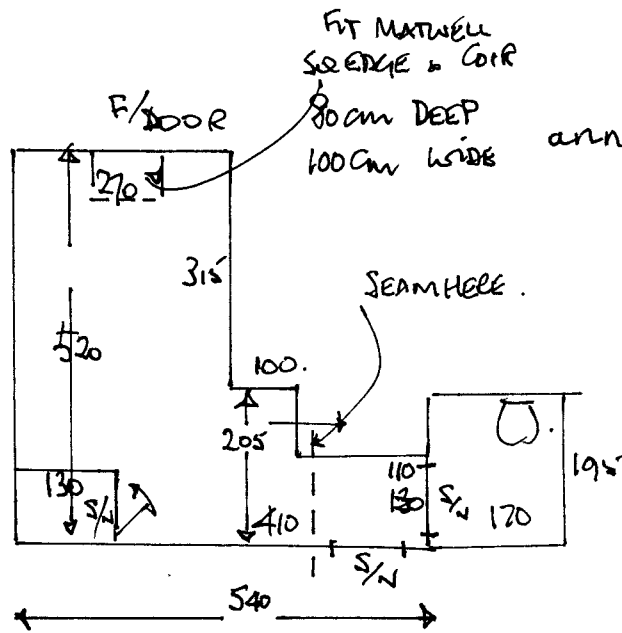 FIT MATWELL
SQ EDGE & COIR
80cm DEEP
100cm WIDE
F/DOOR
270
315
SEAM HERE.
520
100.
205
195
130
S/N
410
110
130
S/N
170
S/N
540